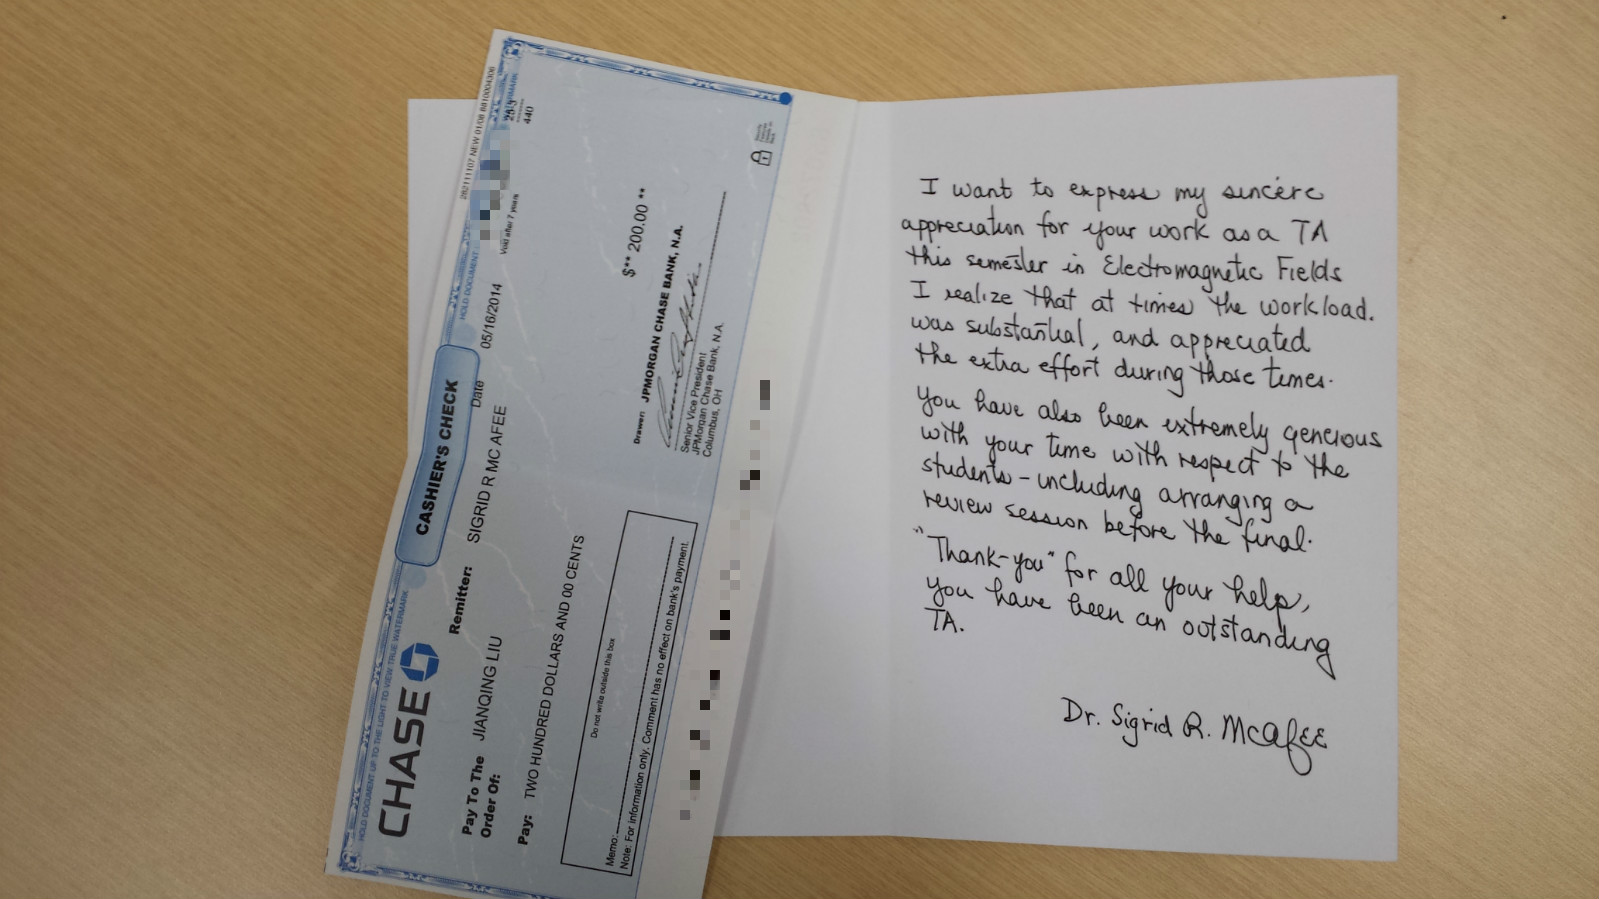 HOLD DOCUMENT UP TO THE LIGHT TO VIEW TRUE WATERMARK
HOLD DOCUMENT
WATERMARK
282111107 NEW 01/08 8810004306
CHASE
CASHIER'S CHECK
Remitter: SIGRID R MC AFEE
Date 05/16/2014
Void after 7 years
25-3
440
Pay To The
Order Of: JIANQING LIU
Pay: TWO HUNDRED DOLLARS AND 00 CENTS
$** 200.00 **
Do not write outside this box
Memo:
Note: For information only. Comment has no effect on bank's payment.
Drawer: JPMORGAN CHASE BANK, N.A.
Senior Vice President
JPMorgan Chase Bank, N.A.
Columbus, OH
Security
Features
Details on
Back.
I want to express my sincere
appreciation for your work as a TA
this semester in Electromagnetic Fields
I realize that at times the workload
was substantial, and appreciated
the extra effort during those times.
You have also been extremely generous
with your time with respect to the
students - including arranging a
review session before the final.
"Thank-you" for all your help,
you have been an outstanding
TA.
Dr. Sigrid R. McAfee